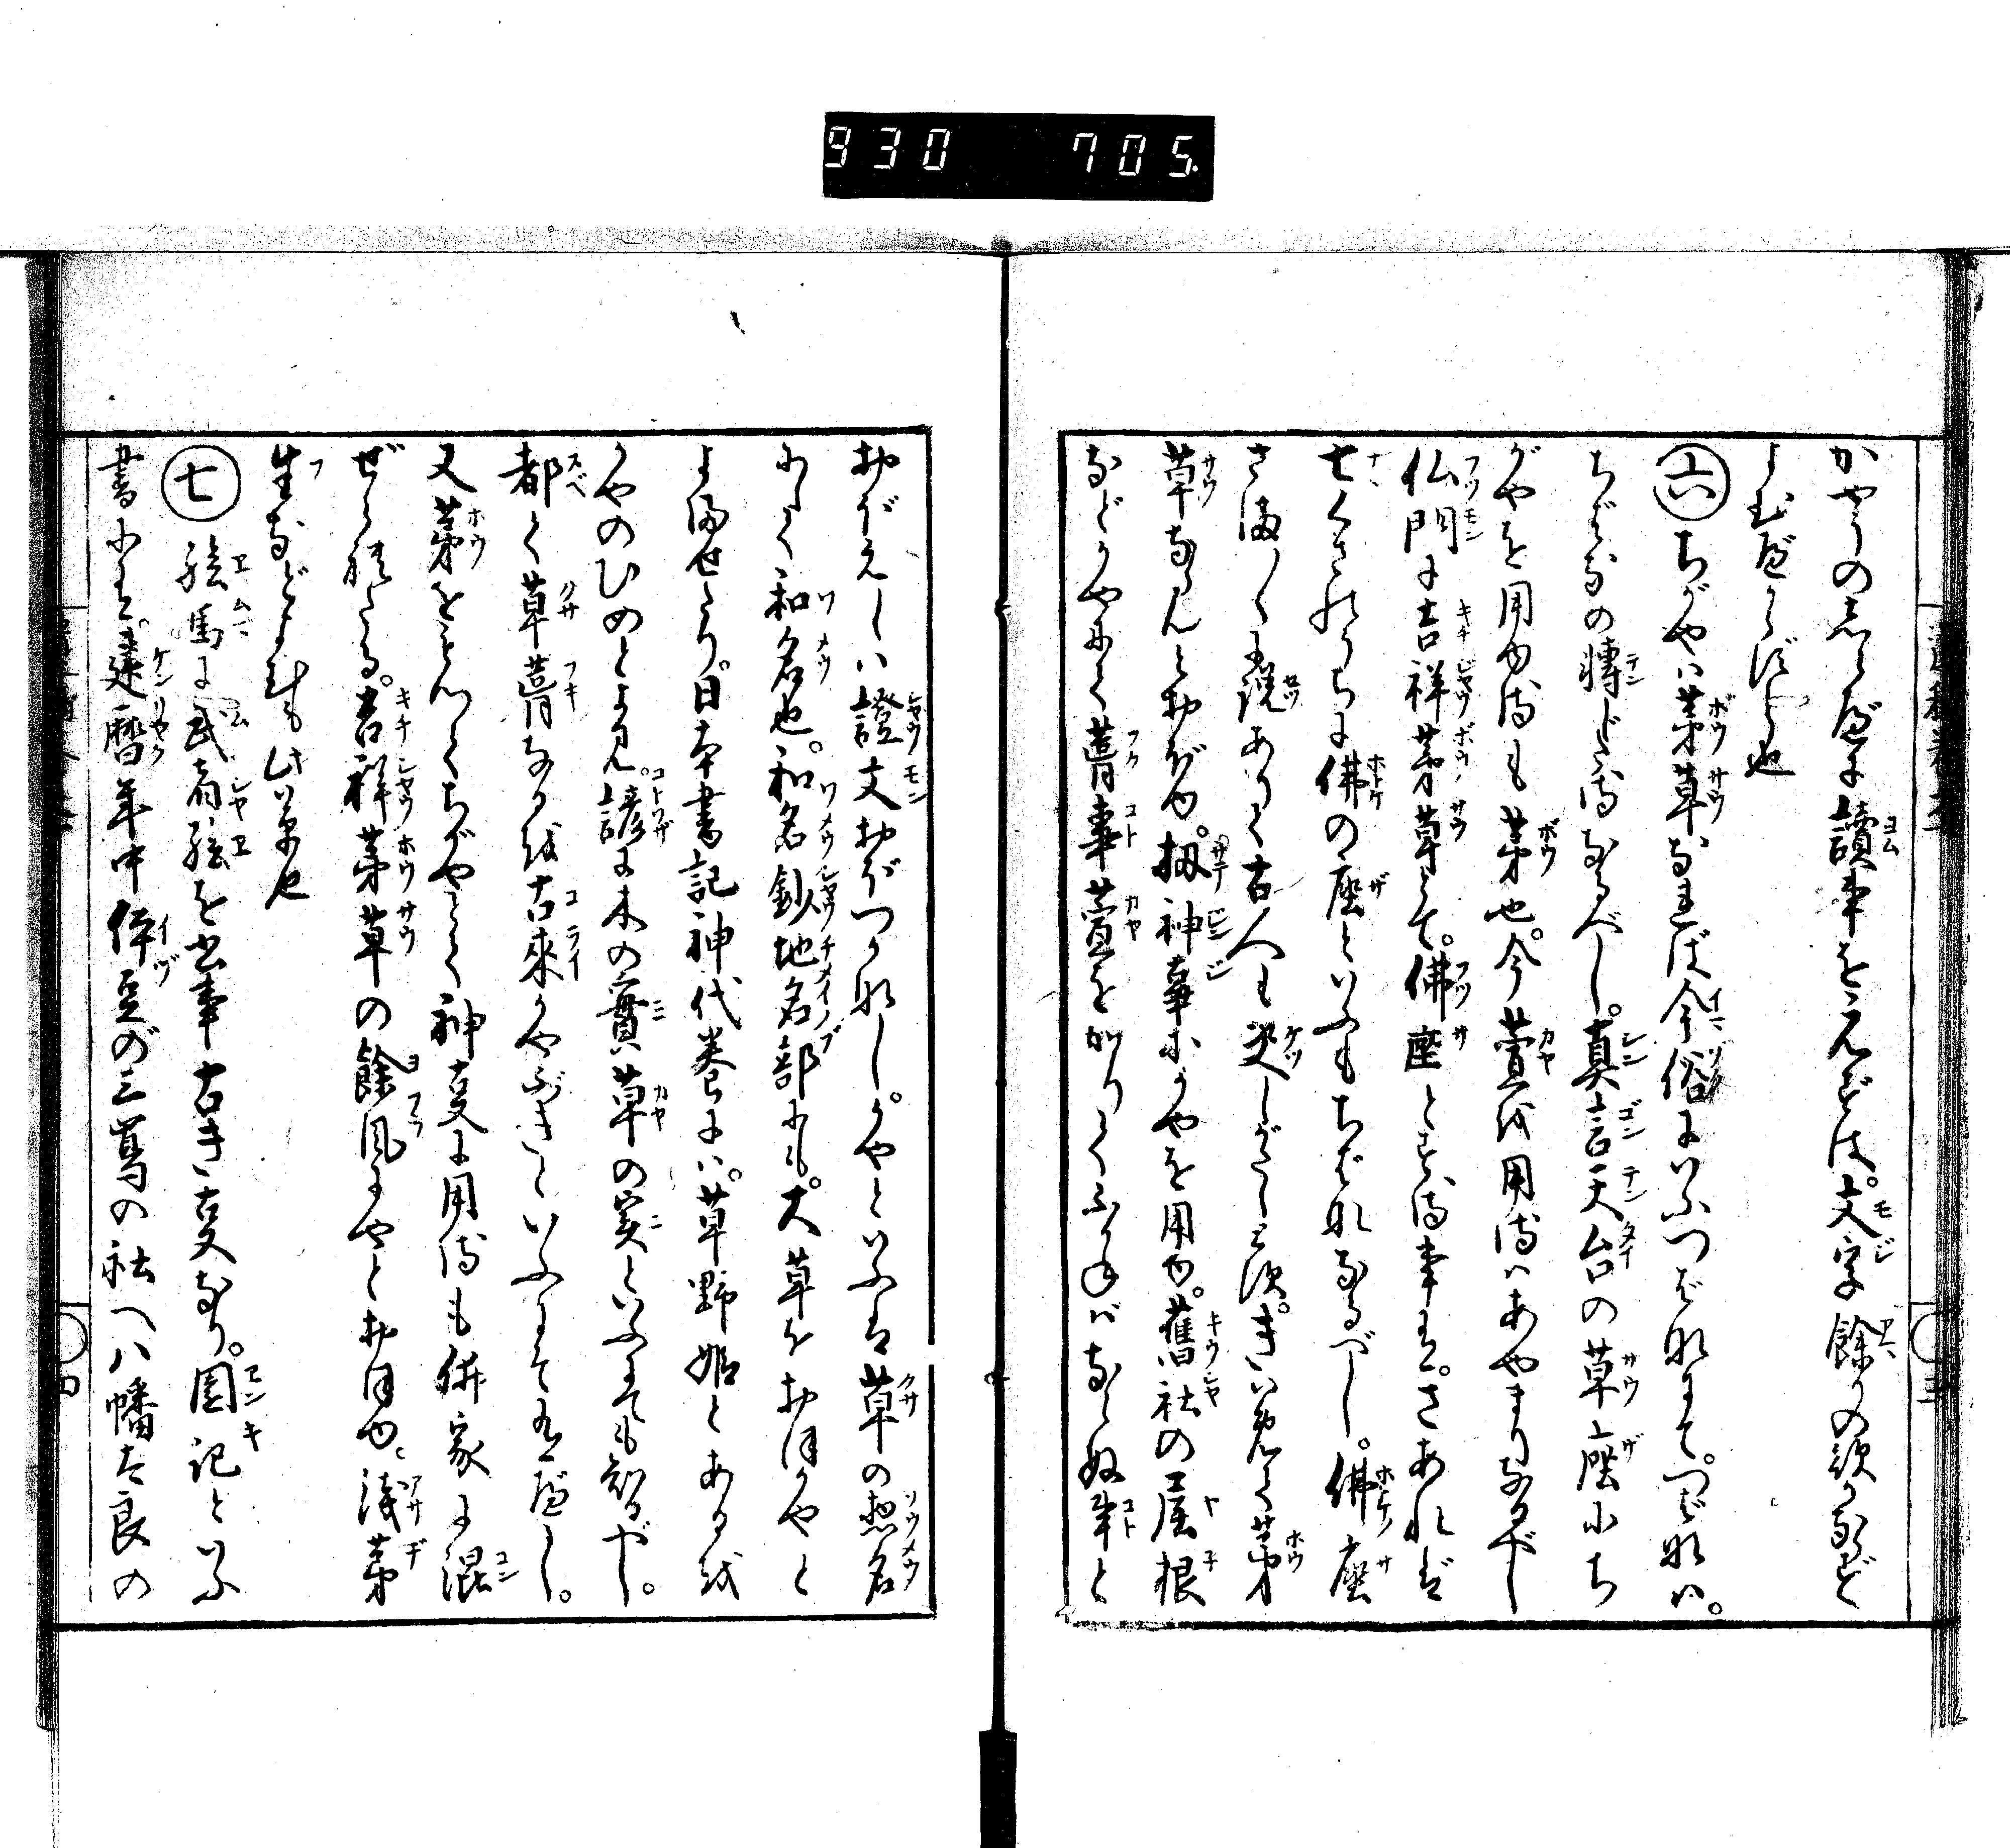 930 705
かやうのたしに讀事をこえざれば。文字餘りの歌などを
よむべからず也
六 ちがやハ茅草なれば今俗にいふつばなにて。つばなハ。
ちばなの轉じたるなるべし。真言天台の草座にち
がやを用ゆるも茅也。今萱を用るハあやまりなるべし
仏門に吉祥茅草とて。佛座とする事は。さあれば
七くさのうちに佛の座といふもちばななるべし。佛座
さま〴〵説ありて古人も決しがたしとす。きハめて茅
草ならんとおぼゆ。扨神事にかやを用ゆ。舊社の屋根
などかやにて葺事萱をかりてふかねばならぬ事と
おぼえしハ證文おぼつかなし。かやといふは草の惣名
にて和名也。和名鈔地名部にも。大草をおほかやと
よませたり。日本書記神代巻にハ。草野姫とあるを
かやのひめとよめ。諺に木の實草の実といふにても知るべし。
都て草葺なるを古來かやぶきといふにても知べし。
又茅をもつてちがやとて神㕝に用るも佛家に混
ぜられたる。吉祥茅草の餘風にやとおほゆ。淺茅
生などよめるも此草也
七 絵馬に武者絵を出事古き㕝なり。園記といふ
書には。延暦年中伊豆が三嶌の社へ八幡太良の